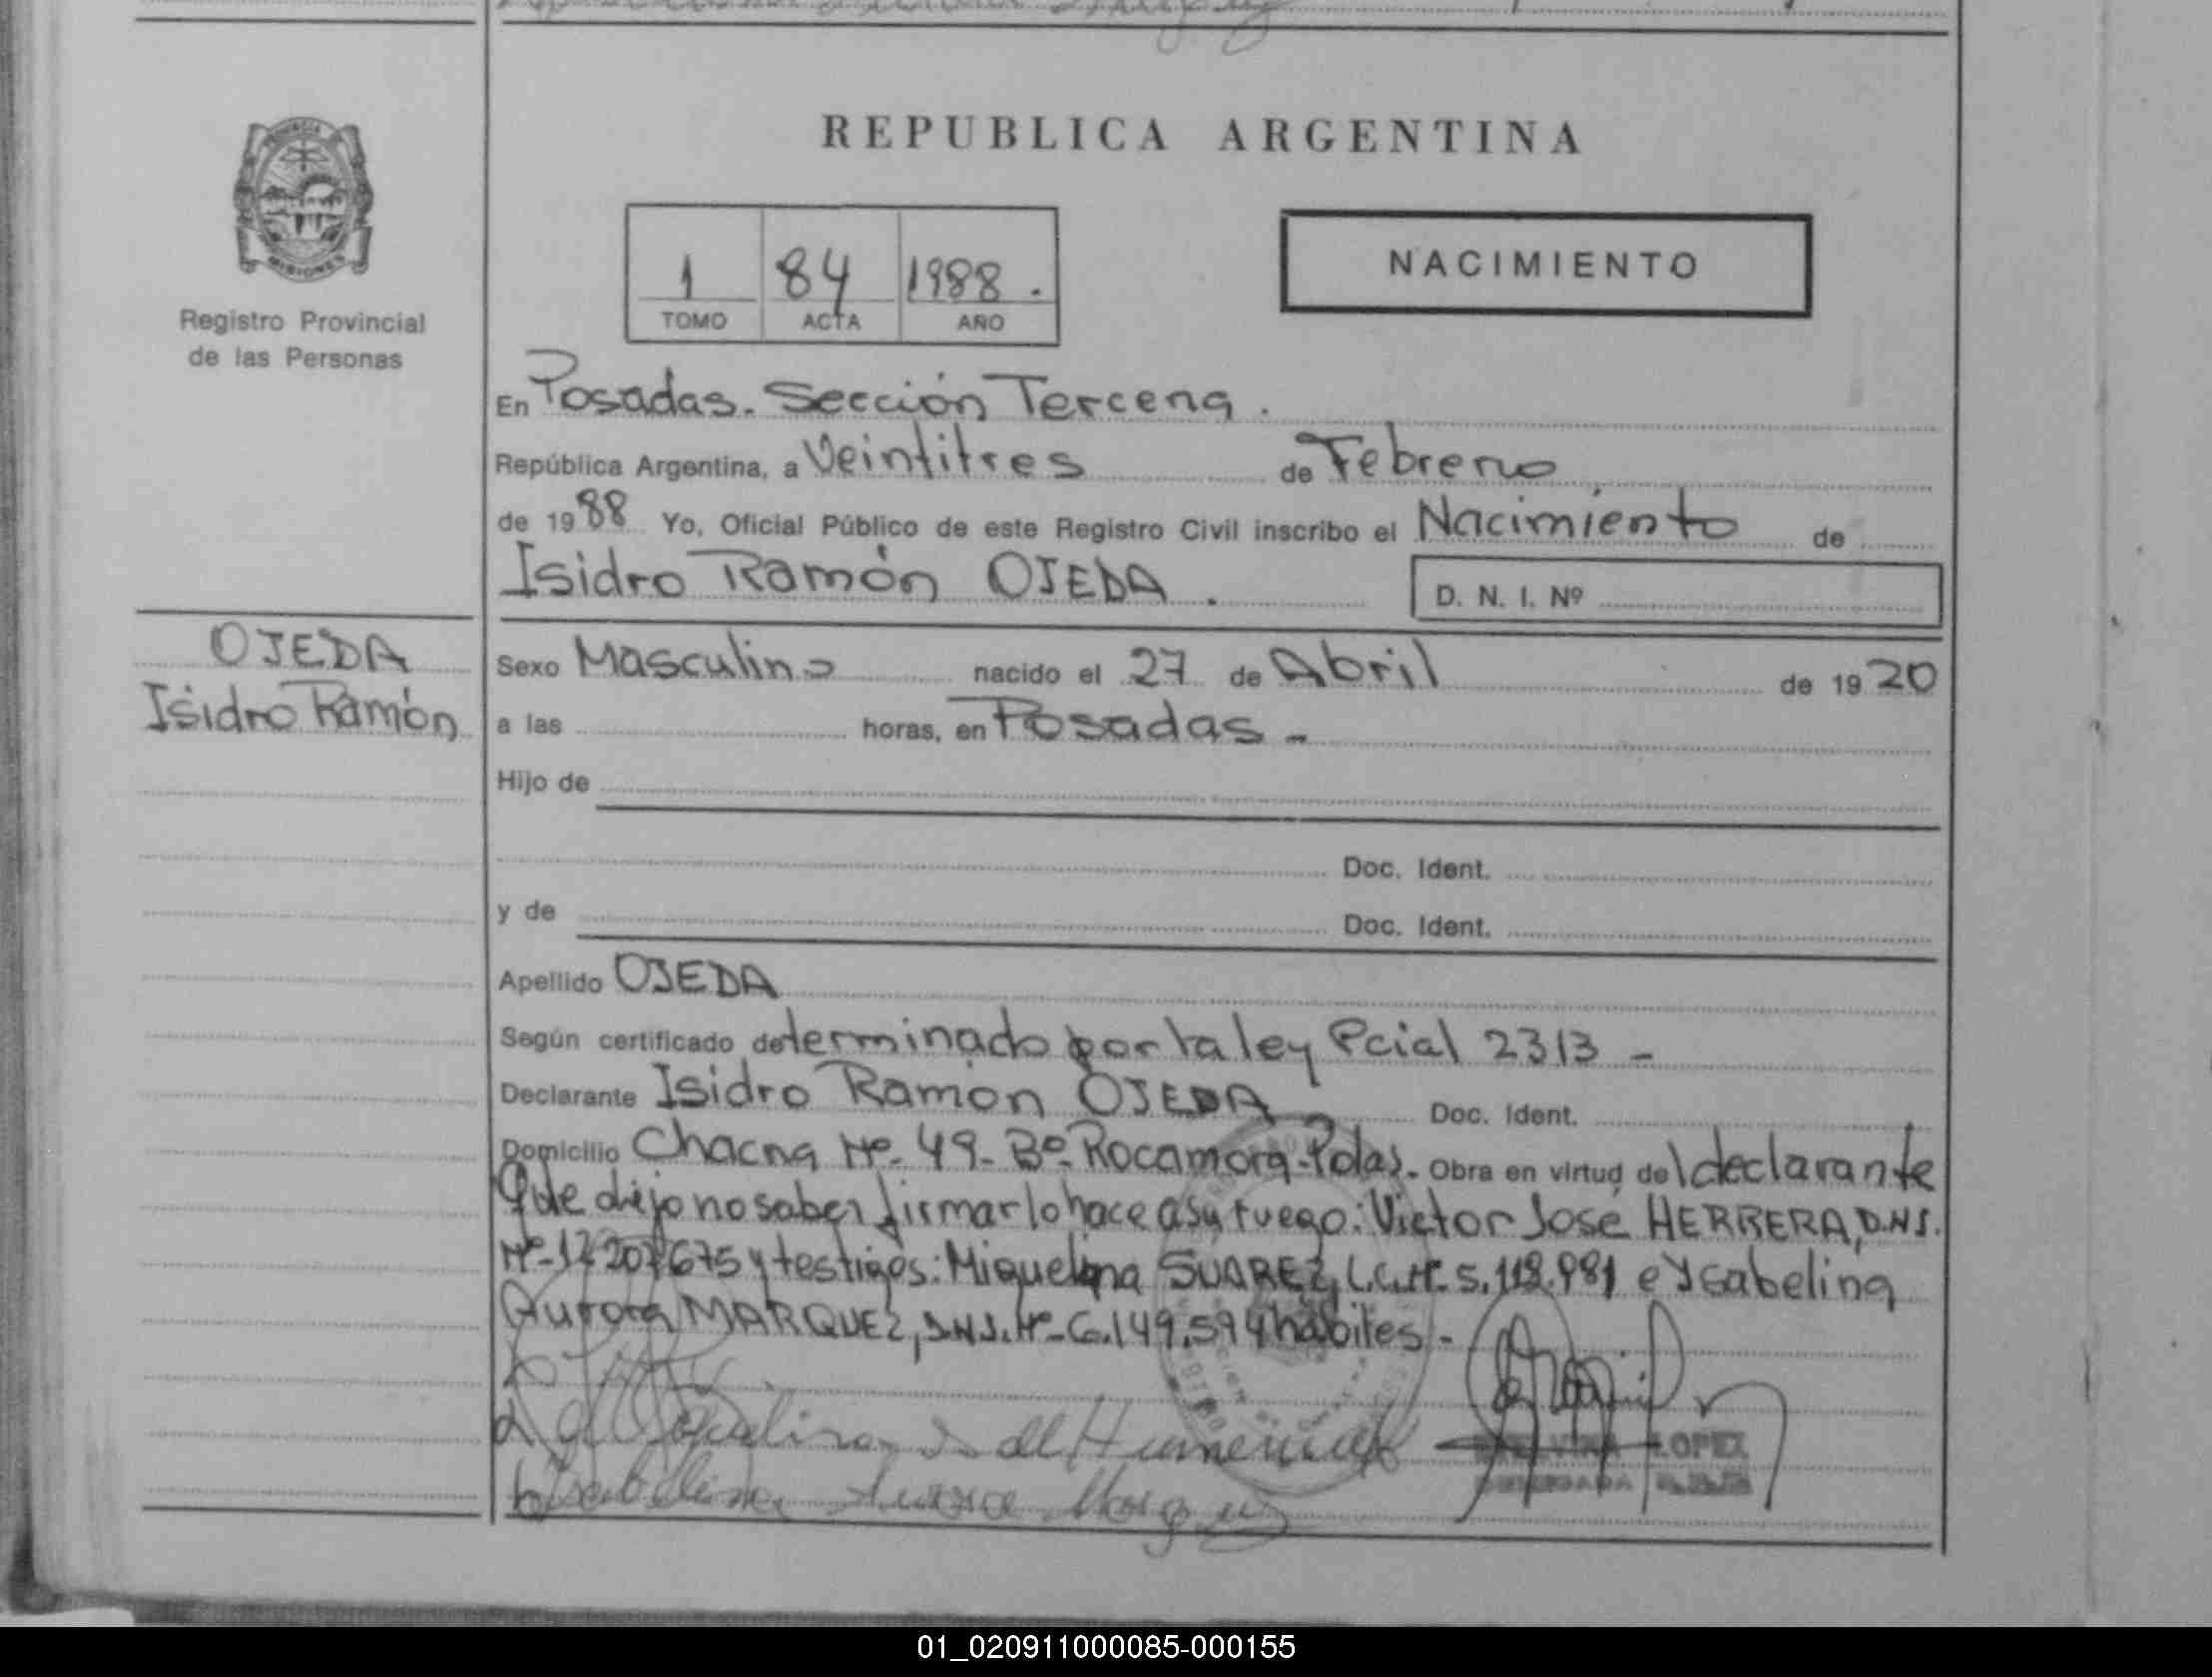 REPUBLICA ARGENTINA
MISIONES
Registro Provincial
de las Personas
1 84 1988.
TOMO ACTA AÑO
NACIMIENTO
En Posadas. Sección Tercena.
República Argentina, a Veintitres de Febrero
de 1988 Yo, Oficial Público de este Registro Civil inscribo el Nacimiento de
Isidro Ramón OJEDA.
D. N. I. Nº
OJEDA
Isidro Ramón
Sexo Masculino nacido el 27 de Abril de 1920
a las horas, en Posadas -
Hijo de
Doc. Ident.
y de Doc. Ident.
Apellido OJEDA
Según certificado determinado por la ley Pcial 2313 -
Declarante Isidro Ramón OJEDA Doc. Ident.
Domicilio Chacra Nº- 49- Bº Rocamora-Pdas. Obra en virtud del declarante
Que dijo no saber firmar lo hace a su ruego: Victor José HERRERA, D.N.I.
Nº- y testigos: Miquelina SUAREZ, L.C.Nº 5.118.981 e Ysabelina
Aurora MARQUEZ, D.N.I. Nº- 6.149.594 hábiles -
LOPEZ
DELEGADA
Isabelina Aurora
01_020911000085-000155